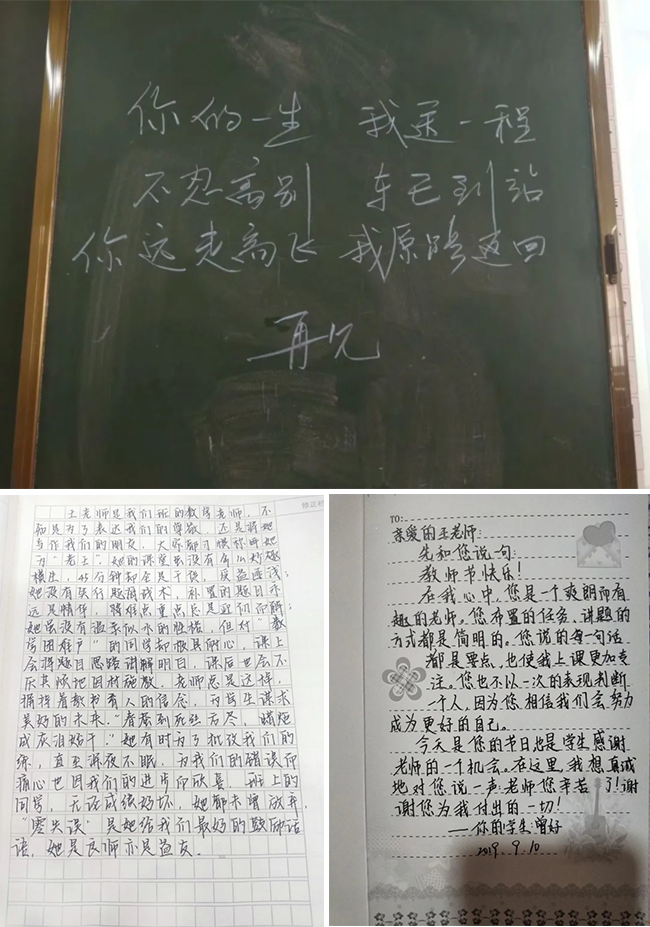 你的一生 我送一程
不忍离别 车已到站
你远走高飞 我原路返回
再见
修正栏
王老师是我们班的数学老师,不
知是为了表达我们的尊敬,还是将她
当作我们的朋友,大家都习惯称呼她
为"老王"。她的课堂虽没有多么妙趣
横生,45分钟却全是干货,
她没有实行题海战术,布置的题目永
远是精华,
她虽没有温柔似水的性格,但对"数
学困难户"的同学却极具耐心,课上
会将题目思路讲解明白,课后也会不
厌其烦地因材施教。老师总是这样,
拥持着教书育人的信念,为学生谋求
美好的未来。"春蚕到死丝方尽,蜡炬
成灰泪始干。"她有时为了批改我们的
练,直至深夜不眠,为我们的错误而
痛心也因我们的进步而欣喜。班上的
同学,无论成绩好坏,她都未曾放弃,
"零失误"是她给我们最好的鼓励话
语,她是良师亦是益友。
TO:
亲爱的王老师:
先和您说一句:
教师节快乐!
在我心中,您是一个爽朗而有
趣的老师。您布置的任务、讲题的
方式都是简明的。您说的每一句话
都是要点,也使我上课更加专
注。您也不以一次的表现判断
一个人,因为您相信我们会努力
成为更好的自己。
今天是您的节日也是学生感谢
老师的一个机会。在这里,我想真诚
地对您说一声:老师您辛苦了!谢
谢您为我付出的一切!
——你的学生:曾好
2019.9.10